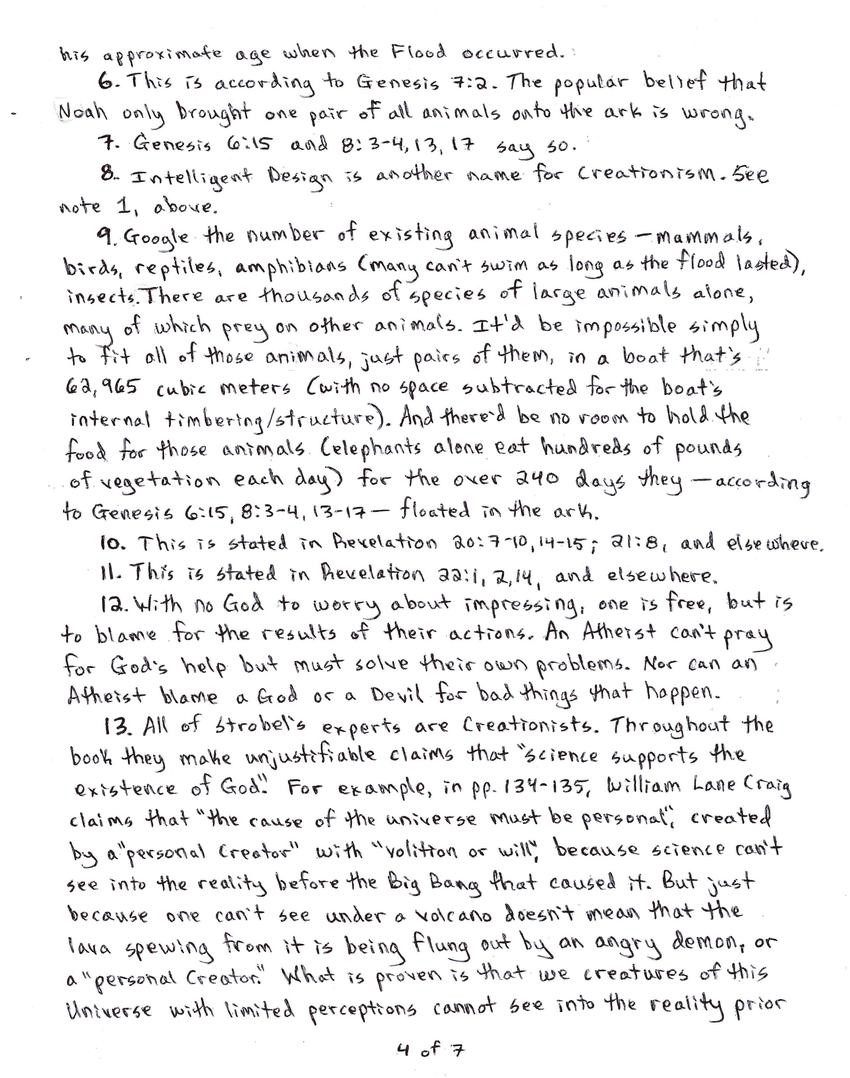 his approximate age when the Flood occurred.
6. This is according to Genesis 7:2. The popular belief that
Noah only brought one pair of all animals onto the ark is wrong.
7. Genesis 6:15 and 8:3-4, 13, 17 say so.
8. Intelligent Design is another name for Creationism. See
note 1, above.
9. Google the number of existing animal species — mammals,
birds, reptiles, amphibians (many can't swim as long as the flood lasted),
insects. There are thousands of species of large animals alone,
many of which prey on other animals. It'd be impossible simply
to fit all of those animals, just pairs of them, in a boat that's
62,965 cubic meters (with no space subtracted for the boat's
internal timbering/structure). And there'd be no room to hold the
food for those animals (elephants alone eat hundreds of pounds
of vegetation each day) for the over 240 days they — according
to Genesis 6:15, 8:3-4, 13-17 — floated in the ark.
10. This is stated in Revelation 20:7-10, 14-15; 21:8, and elsewhere.
11. This is stated in Revelation 22:1, 2, 14, and elsewhere.
12. With no God to worry about impressing, one is free, but is
to blame for the results of their actions. An Atheist can't pray
for God's help but must solve their own problems. Nor can an
Atheist blame a God or a Devil for bad things that happen.
13. All of Strobel's experts are Creationists. Throughout the
book they make unjustifiable claims that "science supports the
existence of God." For example, in pp. 134-135, William Lane Craig
claims that "the cause of the universe must be personal", created
by a "personal Creator" with "volition or will", because science can't
see into the reality before the Big Bang that caused it. But just
because one can't see under a volcano doesn't mean that the
lava spewing from it is being flung out by an angry demon, or
a "personal Creator." What is proven is that we creatures of this
Universe with limited perceptions cannot see into the reality prior
4 of 7